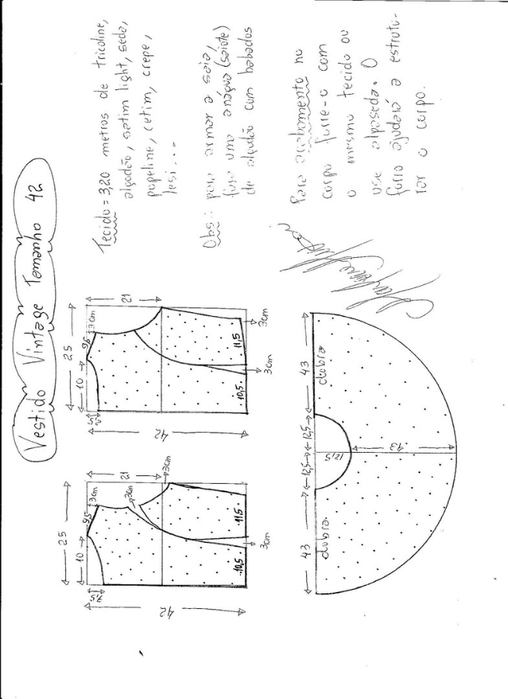 Vestido Vintage Tamanho 42
Tecido = 3,20 metros de tricoline,
algodão, cetim light, seda,
popeline, cetim, crepe,
lesi...
Obs: para armar a saia,
faça uma anágua (saiote)
de algodão com babados
Para acabamento no
corpo forre-o com
o mesmo tecido ou
use alpaseda. O
forro ajudará a estrutu-
rar o corpo.
25
10
9,5
3cm
21
3cm
3cm
7,5
42
10,5
11,5
3cm
25
10
9,5
3cm
21
42
10,5
11,5
3cm
3cm
43
12,5
12,5
43
dobra
dobra
12,5
43